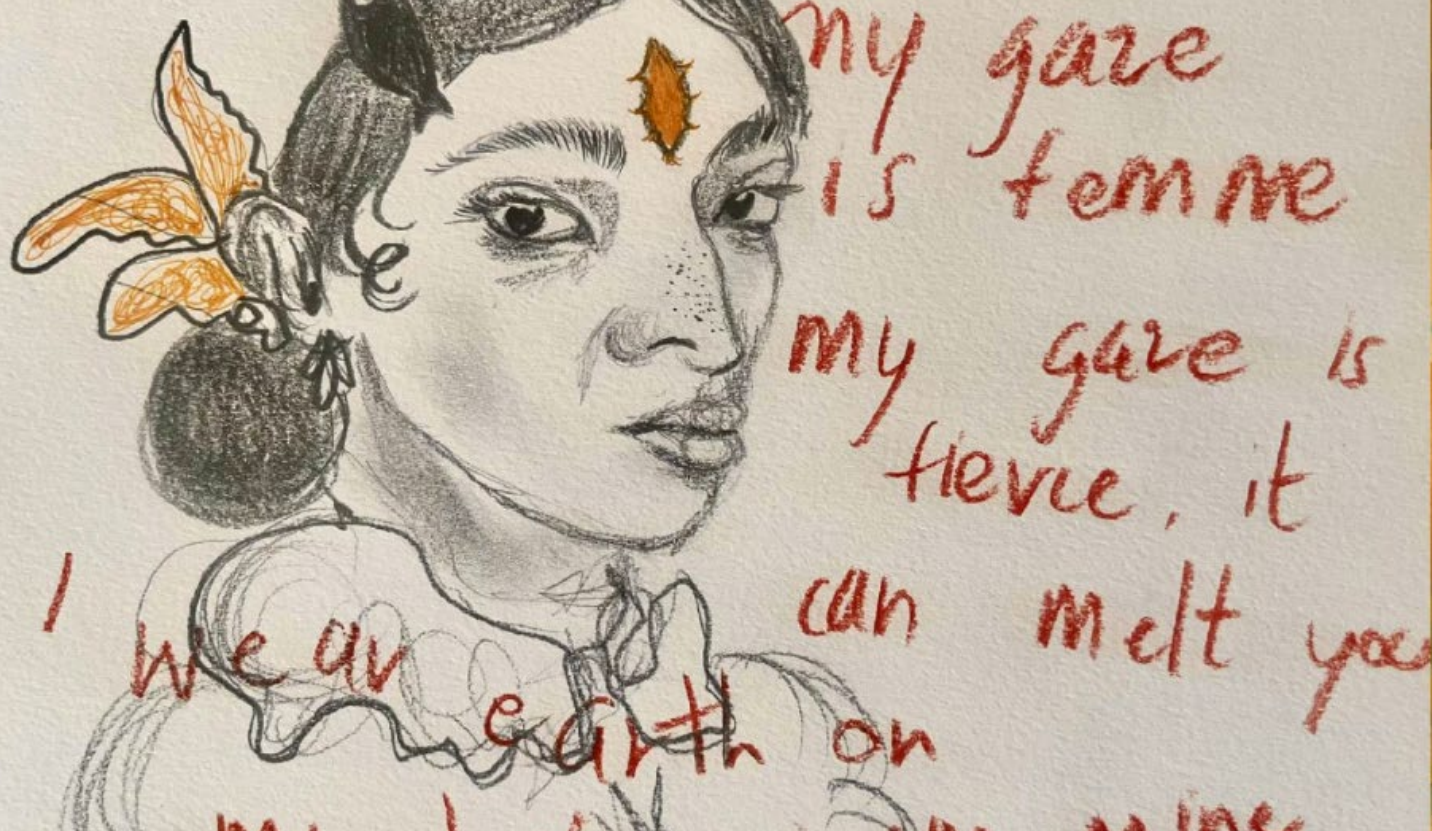 my gaze
is femme
my gaze is
fierce, it
can melt you
I wear
earth on